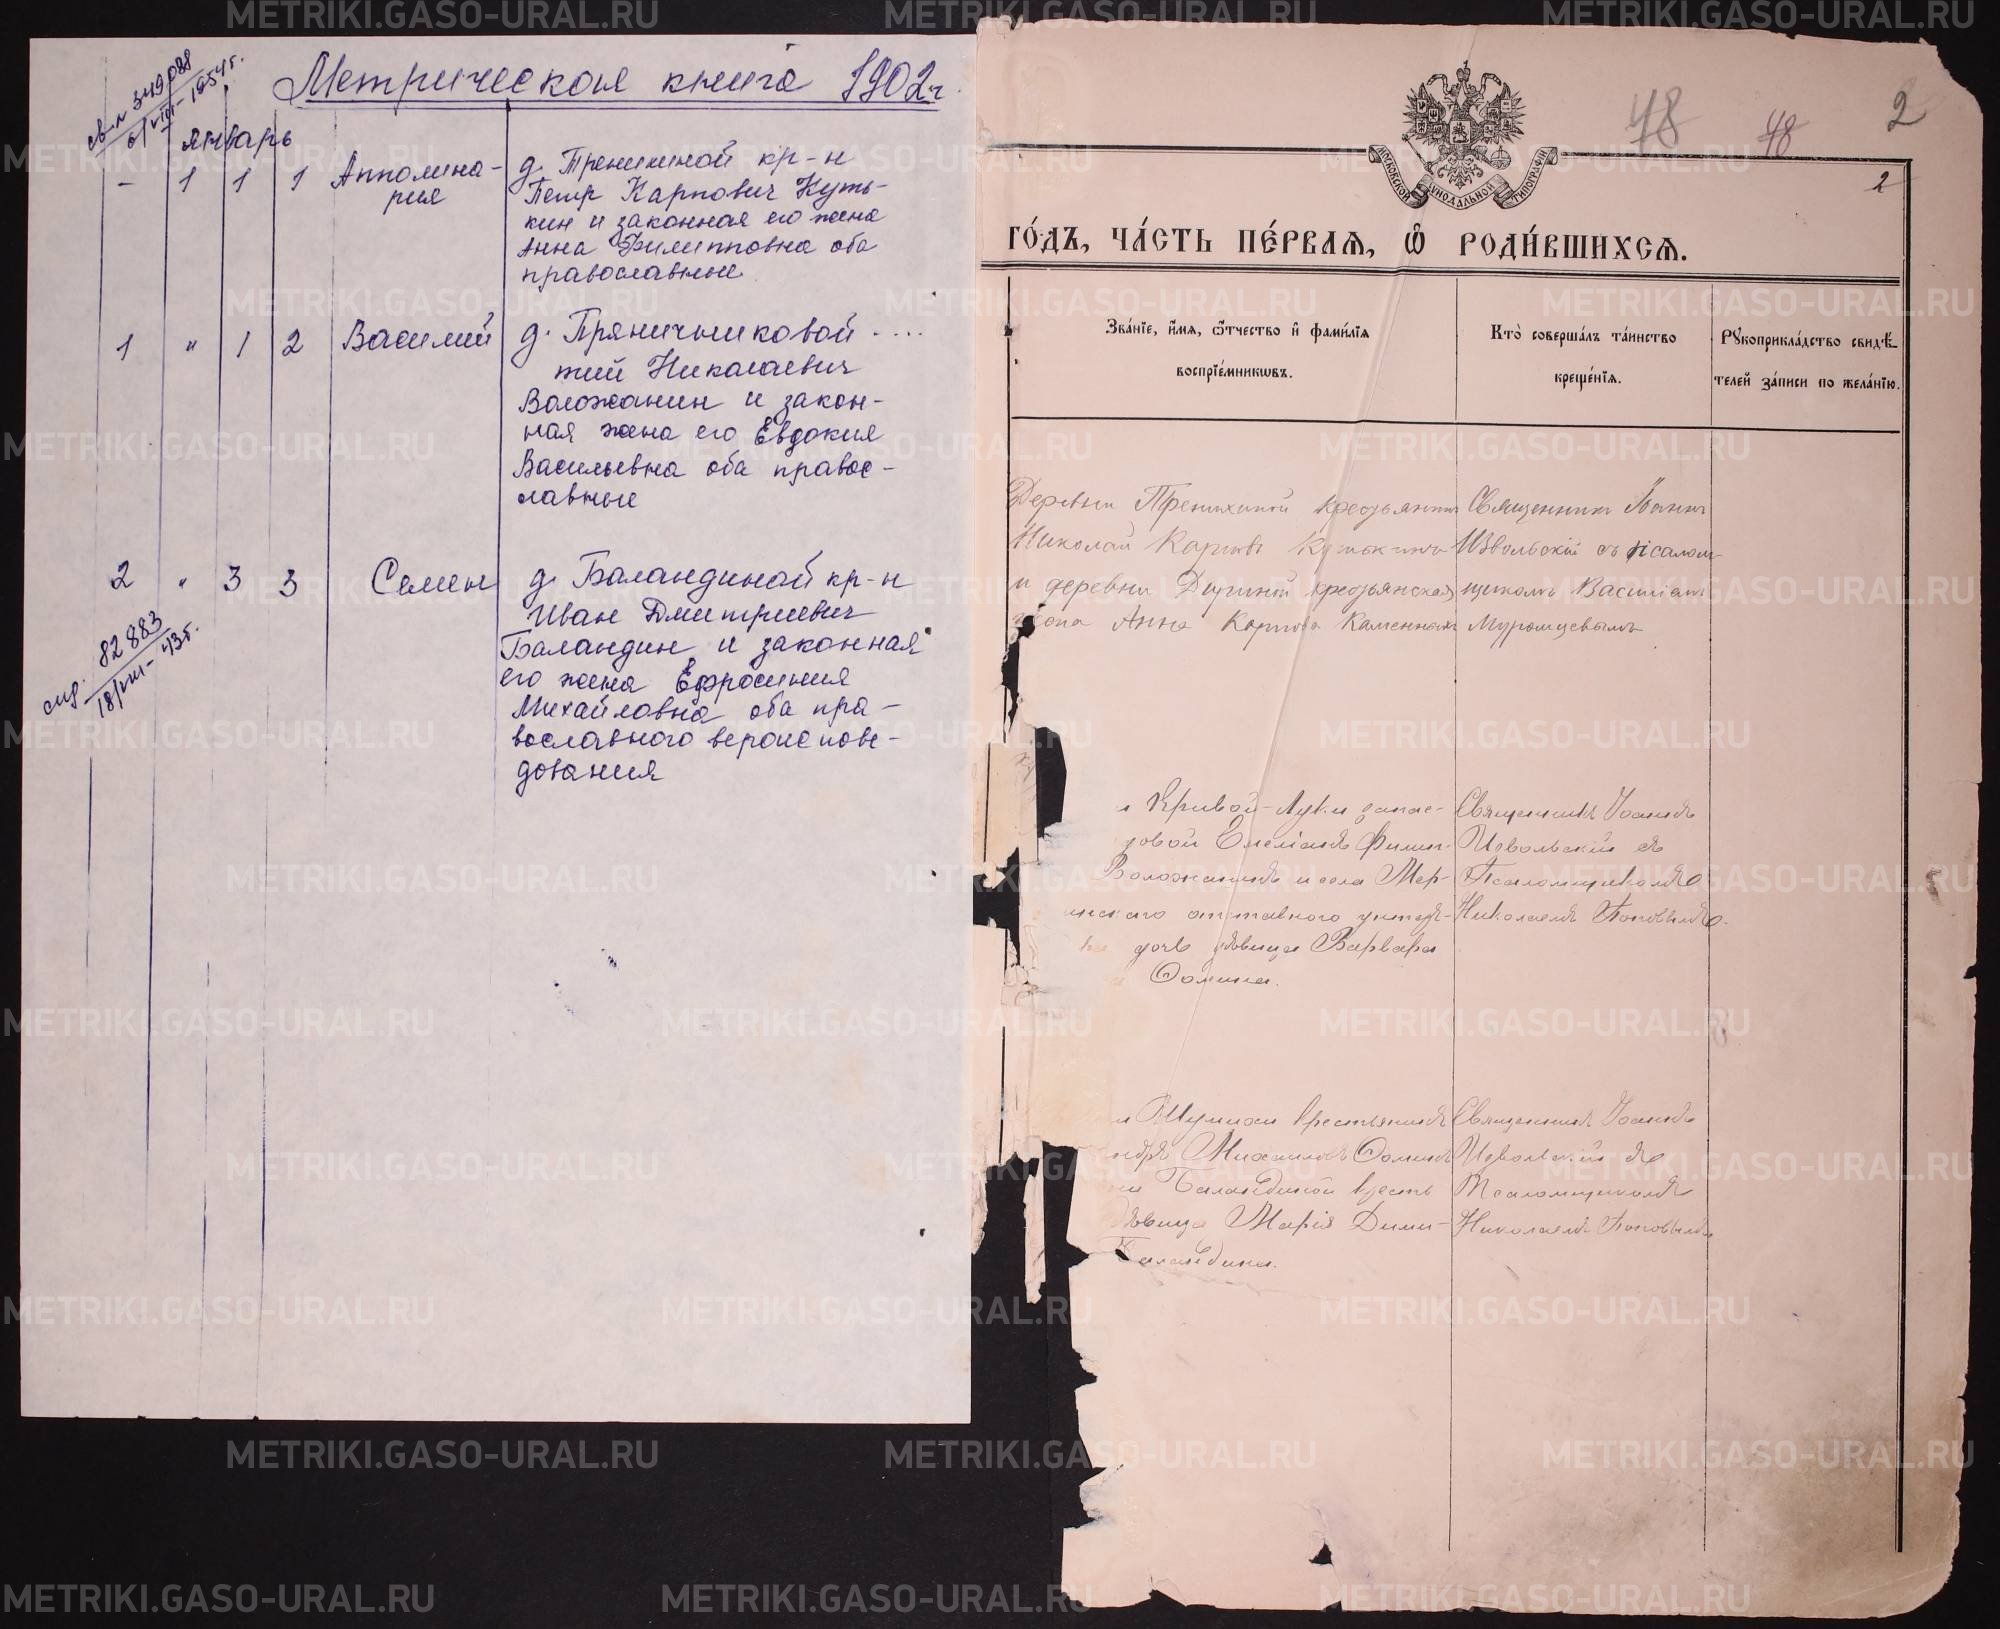 Метрическая книга 1902 г.
св-л 349088
6/VIII-1954 г.
январь
- 1 1 1 Апполина-
рия
д. Тренихиной кр-н
Петр Карпович Куть-
кин и законная его жена
Анна Филипповна оба
православные
1 " 1 2 Василий
д. Пряничниковой ....
тий Николаевич
Воложанин и закон-
ная жена его Евдокия
Васильевна оба правос-
лавные
2 " 3 3 Семен
спр. 82883
18/VIII-43 г.
д. Баландиной кр-н
Иван Дмитриевич
Баландин и законная
его жена Ефросиния
Михайловна оба пра-
вославного вероиспове-
дования
МОСКОВСКОЙ СУНОДАЛЬНОЙ ТИПОГРАФІИ
48 48 2
2
ГО́ДЪ, ЧА́СТЬ ПЕ́РВАЯ, Ѽ РОДИ́ВШИХСЯ.
Зва́нїе, и҆́мя, ѻ҆́тчество и҆ фами́лїя
воспрїе́мникѡвъ.
Кто̀ соверша́лъ та́инство
креще́нїя.
Рꙋкоприкла́дство свидѣ́-
телей за́писи по жела́нїю.
Деревни Тренихиной крестьянинъ
Николай Карповъ Кутькинъ
и деревни Дириной крестьянская
жона Анна Карпова Каменныхъ
Священникъ Іоаннъ
Извольскій съ псалом-
щикомъ Василіемъ
Муромцевымъ
и Кривой-Луки запас-
довой Емеліанъ Филип-
Воложанинъ и села Мер-
инскаго отставного унтеръ-
дочь дѣвица Варвара
Ѳомина.
Священникъ Іоаннъ
Извольскій съ
Псаломщикомъ
Николаемъ Поповымъ.
и Шумихи крестьянинъ
ндръ Михаиловъ Ѳоминъ
ни Баландиной крестъ
дѣвица Марія Дими-
Баландина.
Священникъ Іоаннъ
Извольскій съ
Псаломщикомъ
Николаемъ Поповымъ
METRIKI.GASO-URAL.RU